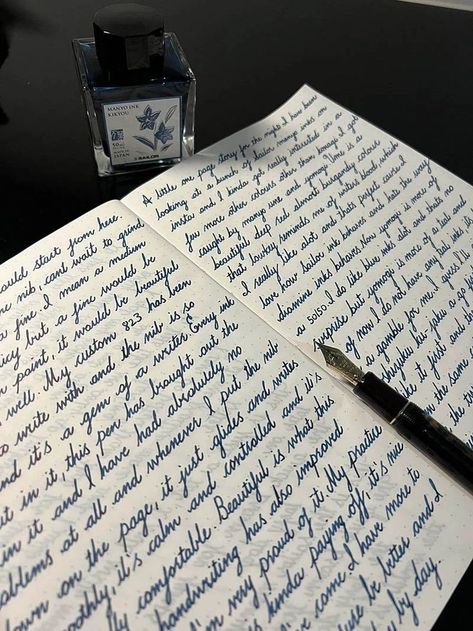 MANYO INK
KIKYOU
50ml
MADE IN
JAPAN
SAILOR
could start from here.
nib, cant wait to grind
fine. I mean a medium
juicy but a fine would be
point, it would be beautiful
well. My custom 823 has been
to write with and the nib is so
and it's a gem of a writer. Every ink
put in it, this pen has brought out the
in it and I have had absolutely no
problems at all and whenever I put the nib
down on the page, it just glides and writes
smoothly, it's calm and controlled and it's
really comfortable. Beautiful is what this
handwriting has also improved
I'm very proud of it. My practice
is kinda paying off, it's nice
come. I have more to
be better and I
by day.
A little one page story for the night. I have been
looking at a bunch of Sailor manyo inks on
insta and I kinda got really interested in a
few more other colours other than konagi. I got
caught by manyo ume and yomogi. Ume is a
beautiful deep red almost burgundy colours
that looks reminds me of oxters blood which
I really like alot and thats perfect cause I
love how sailor ink behaves and has the same
diamine inks behaves. Now yomogi is more of
a so so. I do like blue inks alot and thats no
surprise but yomogi is more of a teal and
of now I do not have any teal inks
a gamble for me. I guess
shinkyoku
like it just
on the same
the